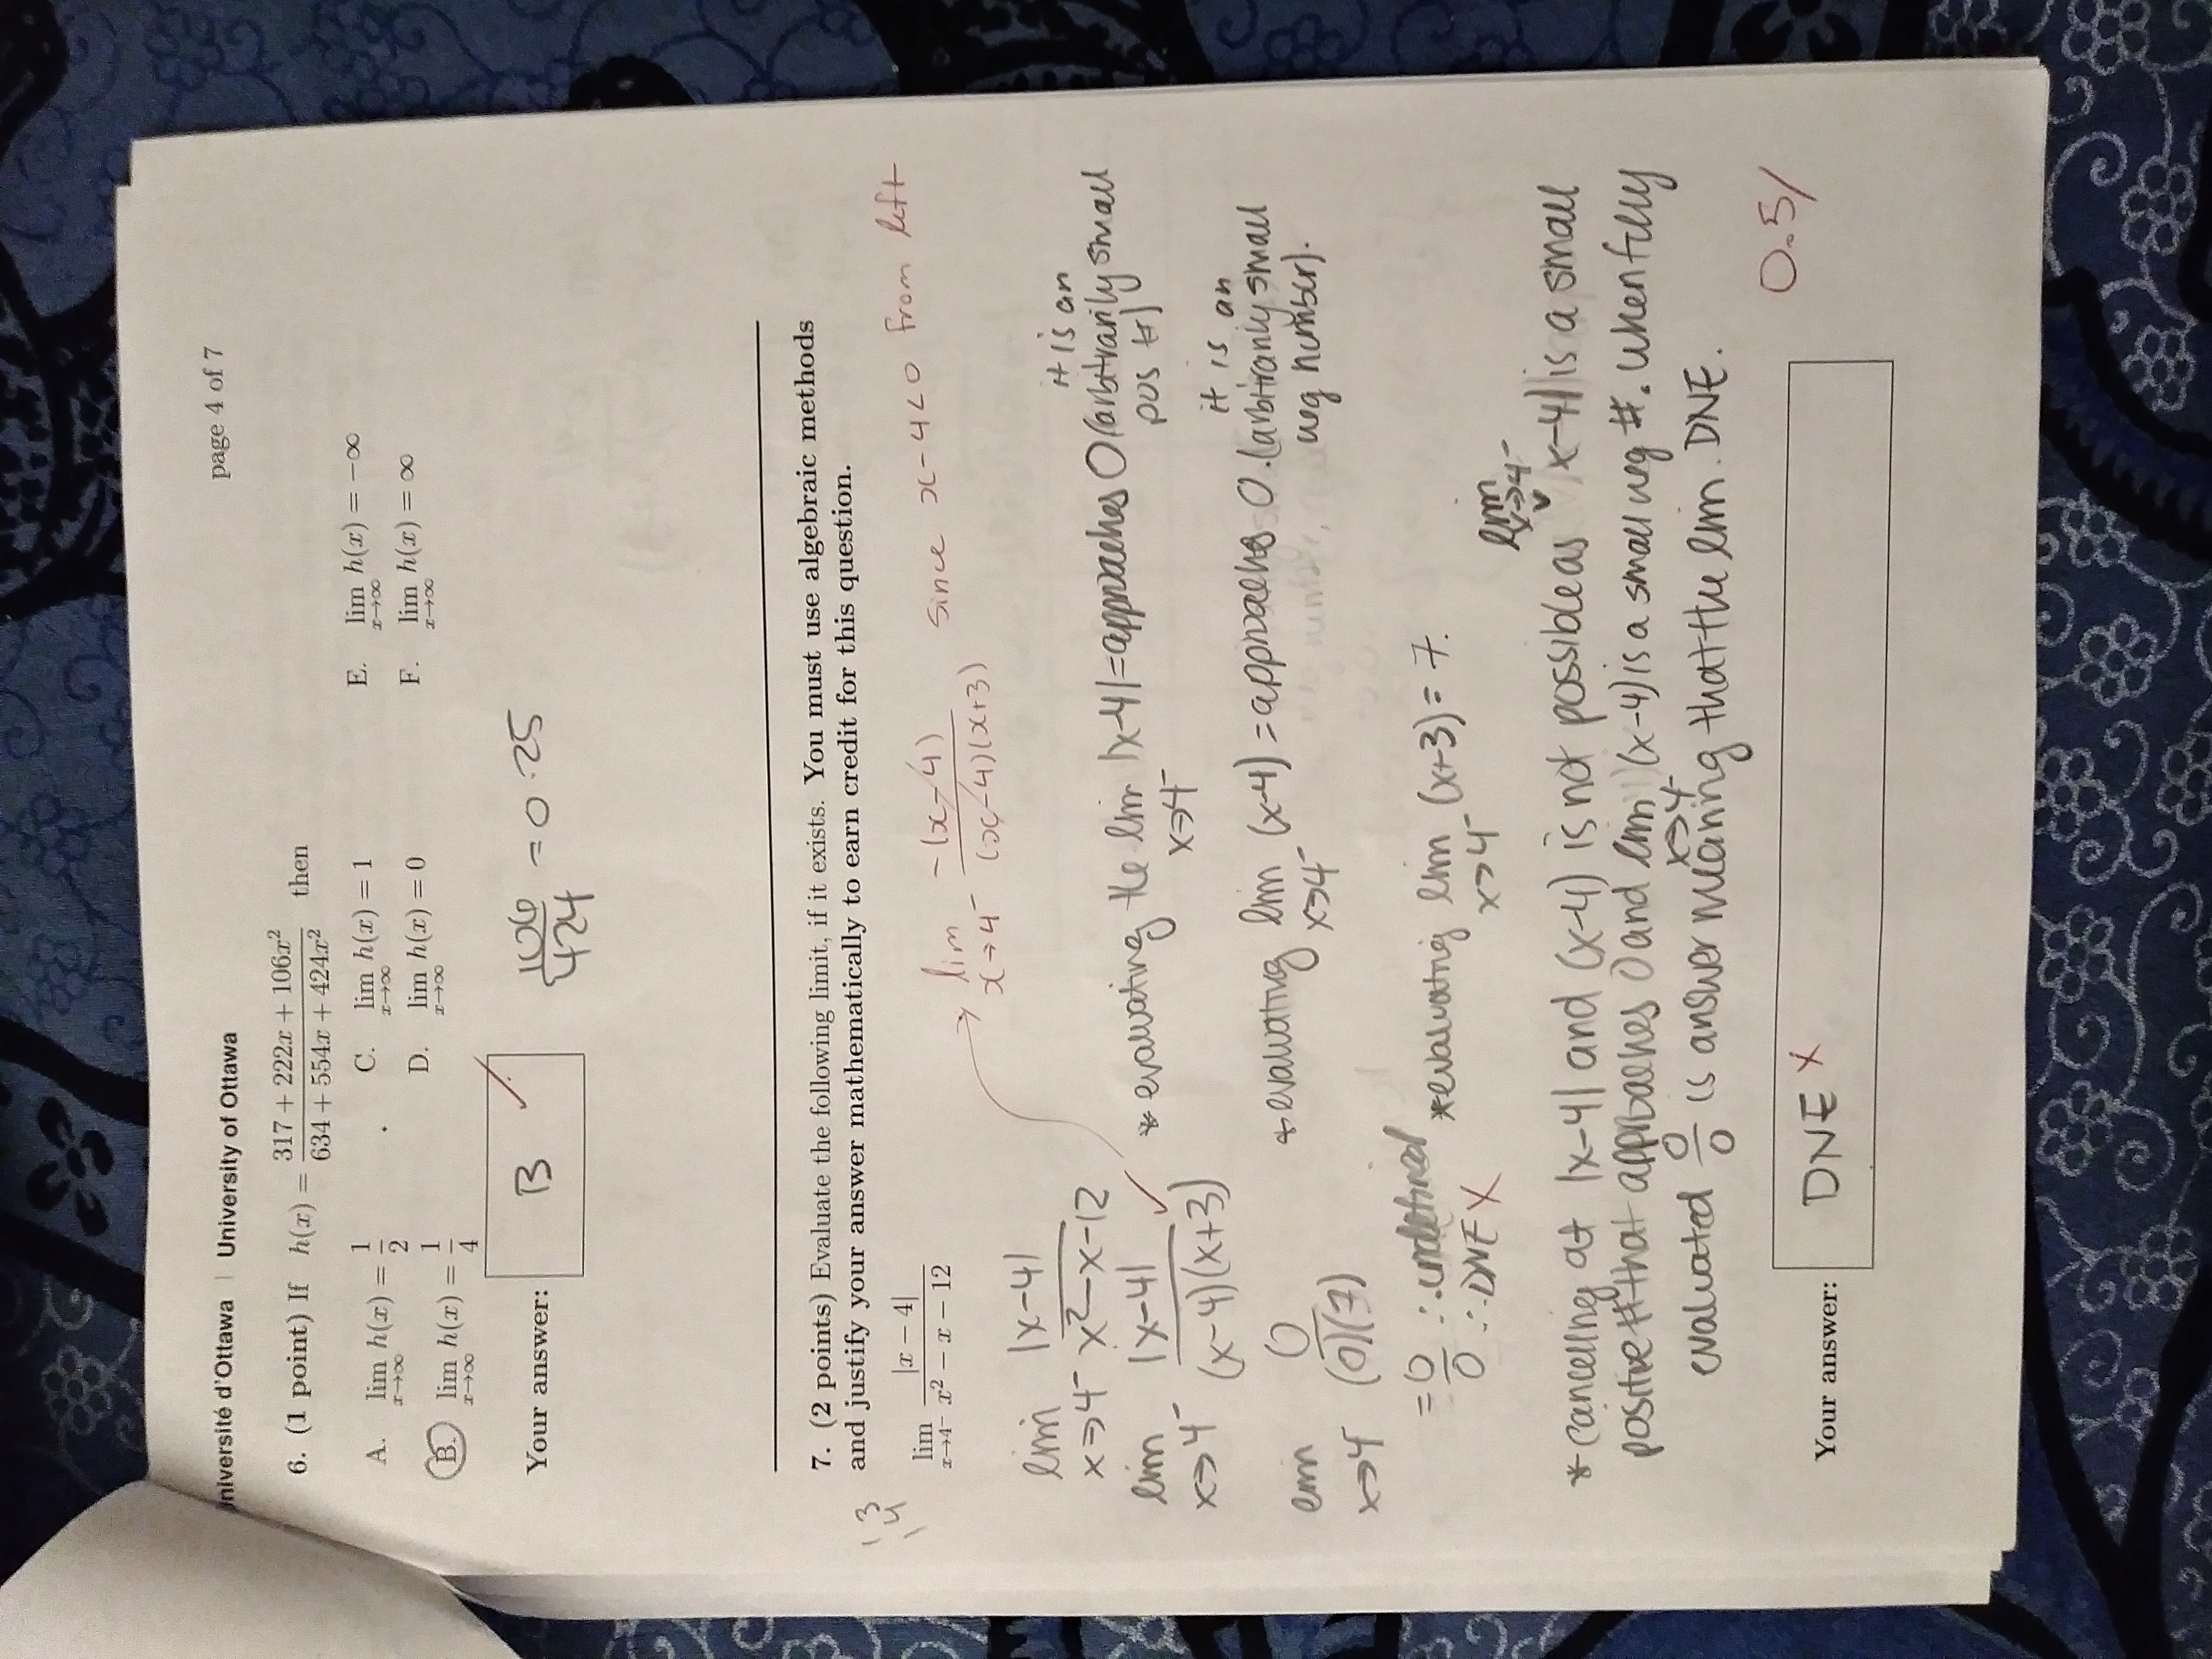 Université d'Ottawa | University of Ottawa
page 4 of 7
6. (1 point) If h(x) = (317 + 222x + 106x²)/(634 + 554x + 424x²) then
A. lim x→∞ h(x) = 1/2
C. lim x→∞ h(x) = 1
E. lim x→∞ h(x) = −∞
B. lim x→∞ h(x) = 1/4
D. lim x→∞ h(x) = 0
F. lim x→∞ h(x) = ∞
Your answer: B ✓
106/424 = 0.25
7. (2 points) Evaluate the following limit, if it exists. You must use algebraic methods
and justify your answer mathematically to earn credit for this question.
lim x→4⁻ |x − 4|/(x² − x − 12)
→ lim x→4⁻ −(x−4)/((x−4)(x+3)) since x−4<0 from left
lim x→4⁻ |x-4|/(x²-x-12)
lim x→4⁻ |x-4|/((x-4)(x+3)) ✓
lim x→4⁻ 0/((0)(7))
= 0/0 ∴ undefined
∴ DNE X
* evaluating the lim x→4⁻ |x-4| = approaches 0 (arbitrarily small
it is an
pos #)
* evaluating lim x→4⁻ (x-4) = approaches 0. (arbitrarily small
it is an
neg number).
* evaluating lim x→4⁻ (x+3) = 7.
* cancelling at |x-4| and (x-4) is not possible as lim x→4⁻ |x-4| is a small
positive # that approaches 0 and lim x→4⁻ (x-4) is a small neg #. when fully
evaluated 0/0 is answer meaning that the lim. DNE.
0.5/
Your answer: DNE X